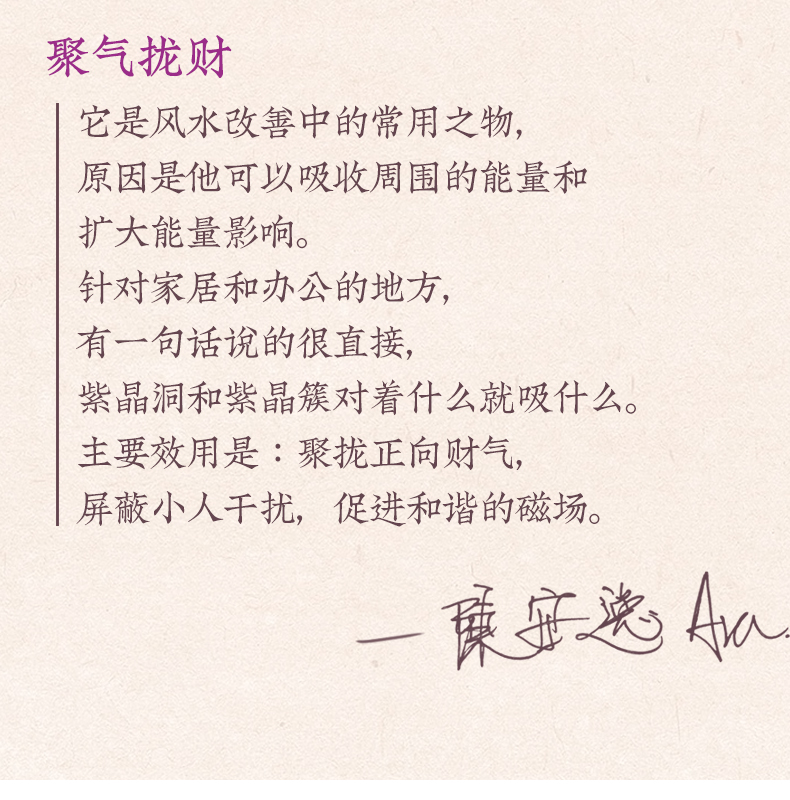 聚气拢财
它是风水改善中的常用之物,
原因是他可以吸收周围的能量和
扩大能量影响。
针对家居和办公的地方,
有一句话说的很直接,
紫晶洞和紫晶簇对着什么就吸什么。
主要效用是：聚拢正向财气,
屏蔽小人干扰, 促进和谐的磁场。
— 陳安逸 Ava.